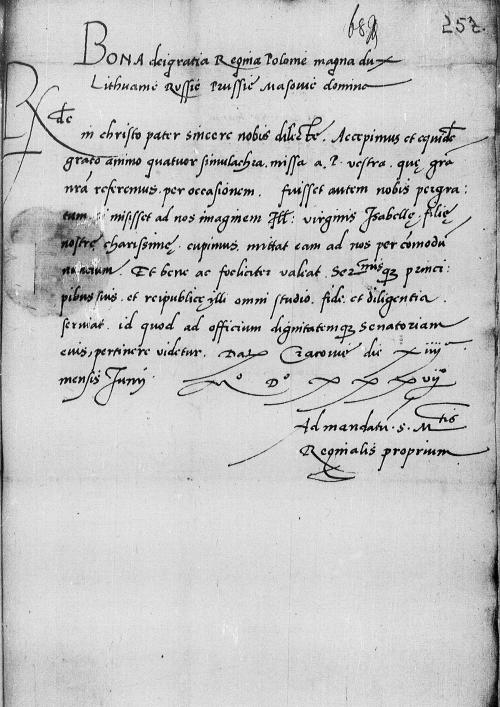 689 252.
BONA dei gratia Regina Polonie magna dux
Lithuanie Russie Prussie Masovie domina
Rde
in christo pater sincere nobis dilecte. Accepimus et equidem
grato animo quatuor simulachra missa a P. vestra, quę gra
nrã referemus per occasionem. fuisset autem nobis pergra:
tum si misisset ad nos imaginem Ill: virginis Isabellę filię
nostrę charissimę. cupimus mittat eam ad nos per comodũ
nuncium. Et bene ac foeliciter valeat. Ser mis qȝ princi:
pibus suis et reipublicę illi omni studio, fide, et diligentia
serviat, id quod ad officium dignitatemqȝ Senatoriam
eius, pertinere videtur. Dat Cracovie die xiiij
mensis Junij Mo Do xxxvijo
Ad mandatũ S. Mtis
Reginalis proprium